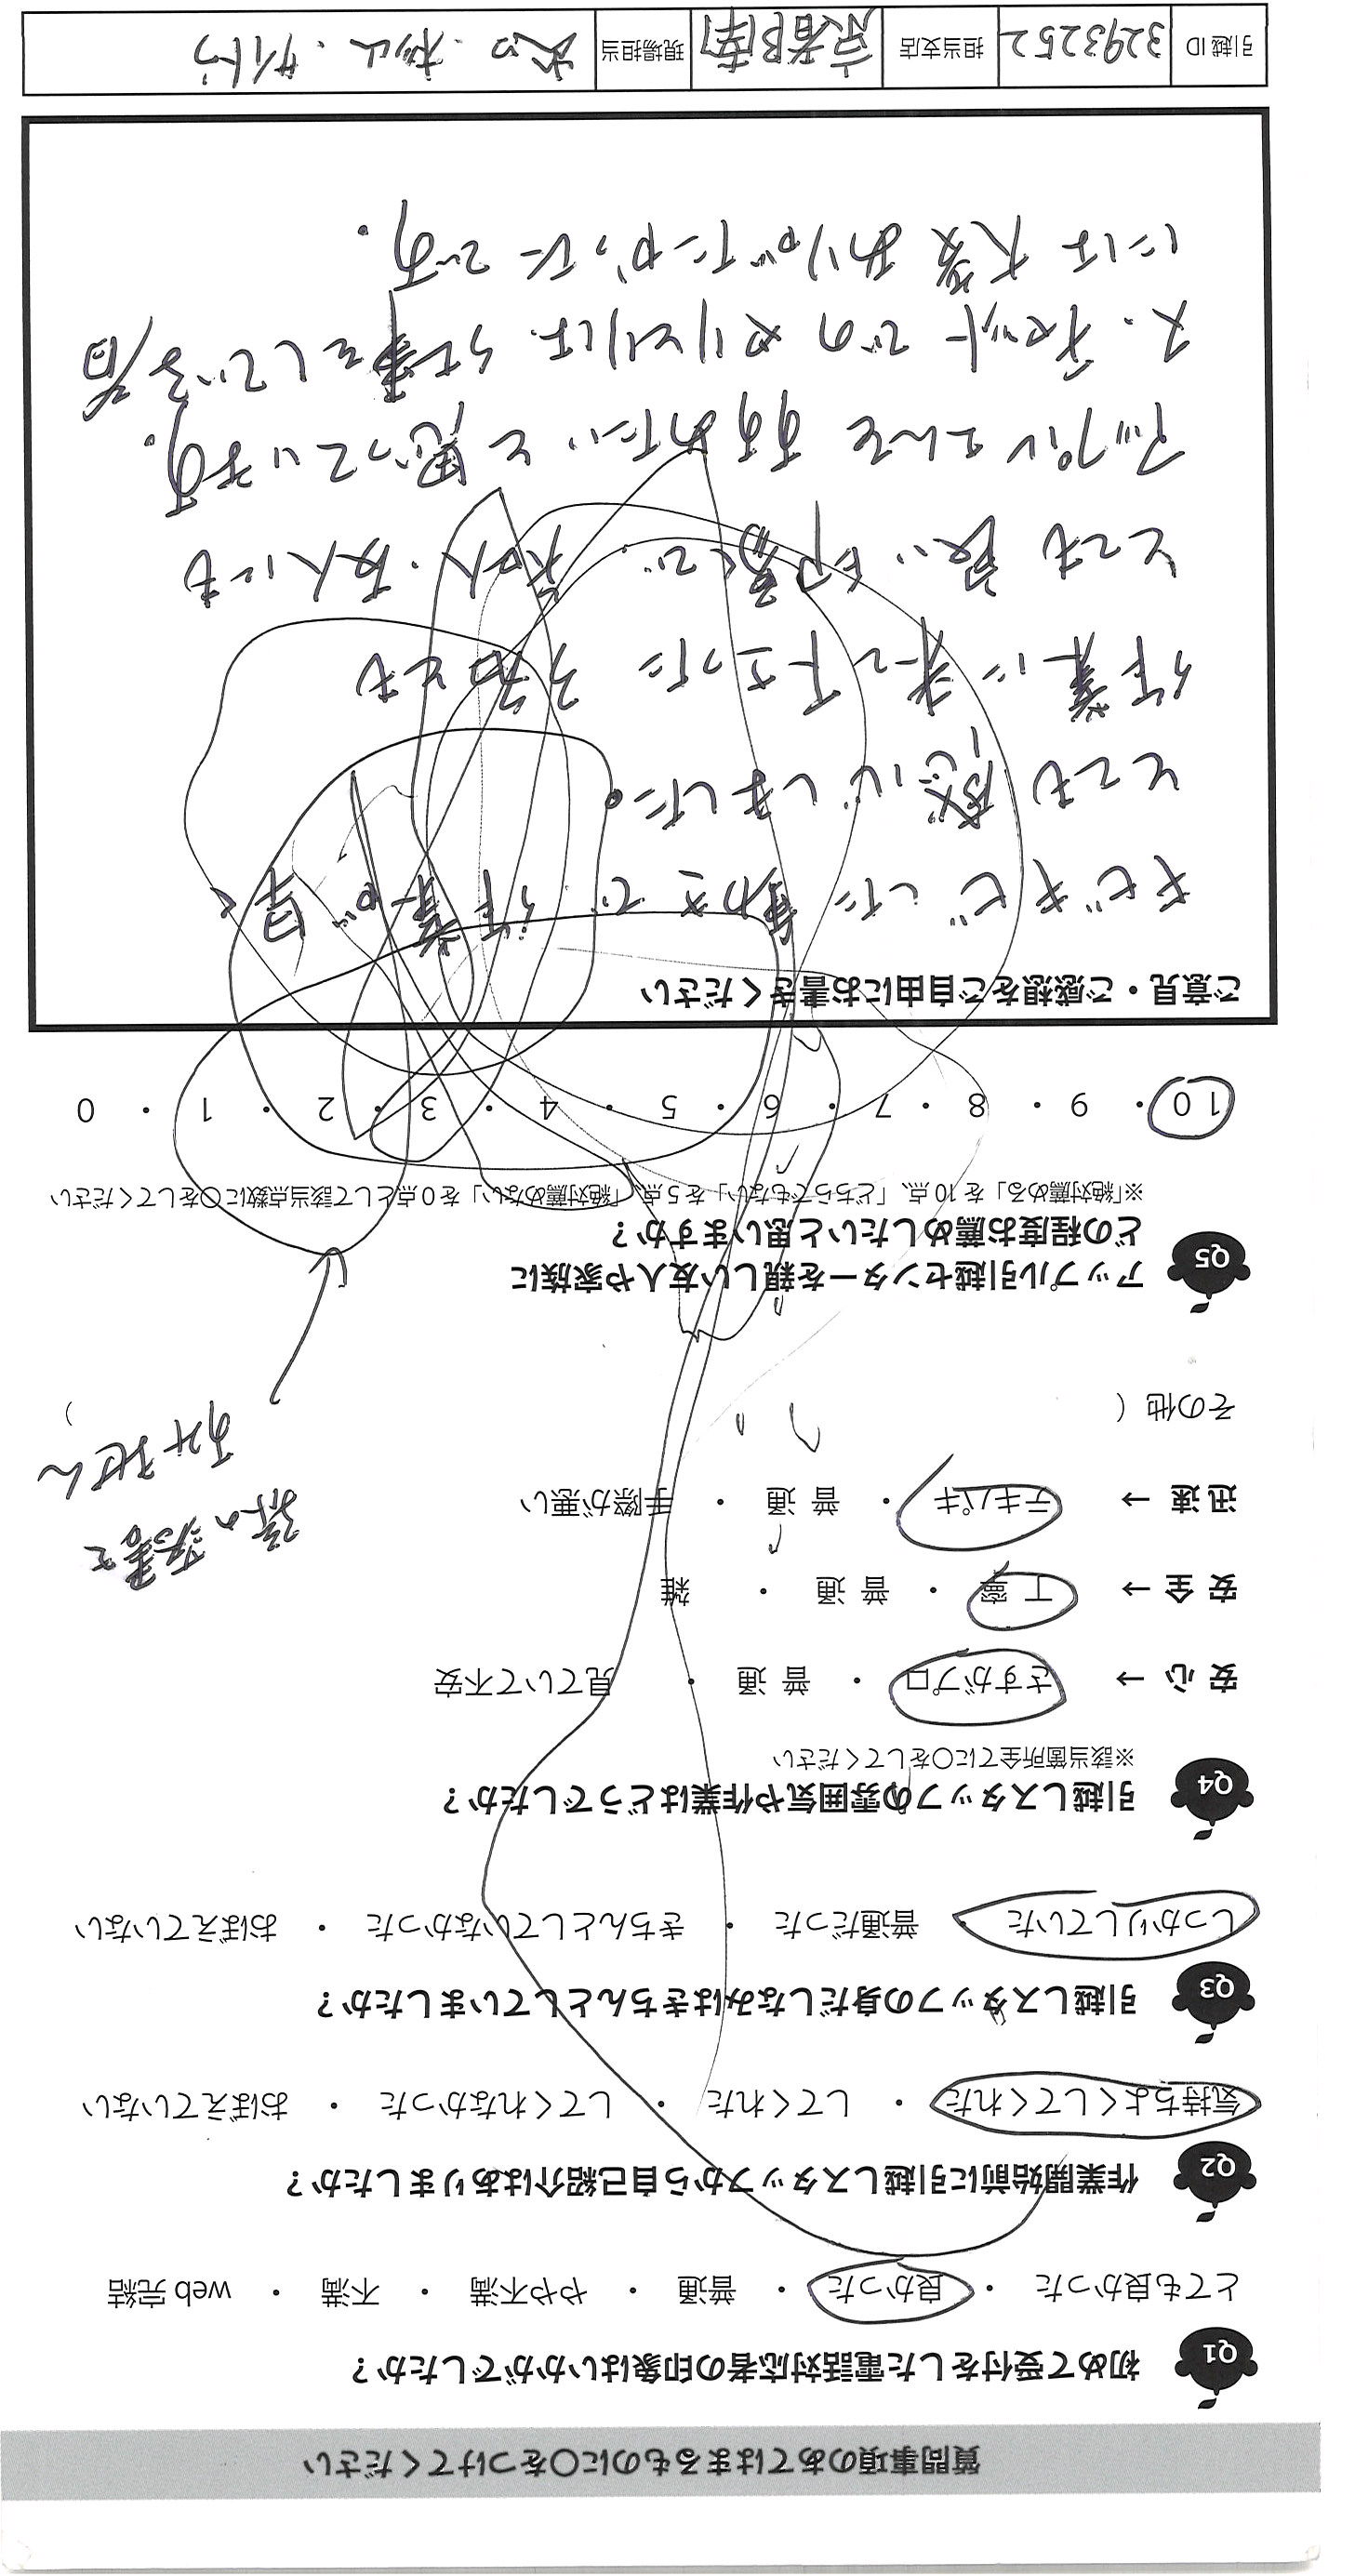 質問事項のあてはまるものに〇をつけてください
Q1 初めて受付をした電話対応者の印象はいかがでしたか？
とても良かった ・ 良かった ・ 普通 ・ やや不満 ・ 不満 ・ web 完結
Q2 作業開始前に引越しスタッフから自己紹介はありましたか？
気持ちよくしてくれた ・ してくれた ・ してくれなかった ・ おぼえていない
Q3 引越しスタッフの身だしなみはきちんとしていましたか？
しっかりしていた ・ 普通だった ・ きちんとしていなかった ・ おぼえていない
Q4 引越しスタッフの雰囲気や作業はどうでしたか？
※該当箇所全てに〇をしてください
安 心 → さすがプロ ・ 普 通 ・ 見ていて不安
安 全 → 丁 寧 ・ 普 通 ・ 雑
迅 速 → テキパキ ・ 普 通 ・ 手際が悪い
その他（ ）
孫の落書き
すみません
Q5 アップル引越センターを親しい友人や家族に
どの程度お薦めしたいと思いますか？
※「絶対薦める」を 10 点、「どちらでもない」を 5 点、「絶対薦めない」を 0 点として該当点数に〇をしてください
10 ・ 9 ・ 8 ・ 7 ・ 6 ・ 5 ・ 4 ・ 3 ・ 2 ・ 1 ・ 0
ご意見・ご感想をご自由にお書きください
キビキビした動きで作業が早く
とても感心しました。
作業に来て下さった 3名とも
とても良い印象で 知人・友人にも
アップルさんを すすめたいと思っています。
又、チャットでのやりとりは、仕事をしている者
には大変ありがたかったです。
引越 ID 3293252 担当支店 京都南 現場担当 ・杉山・サイトウ